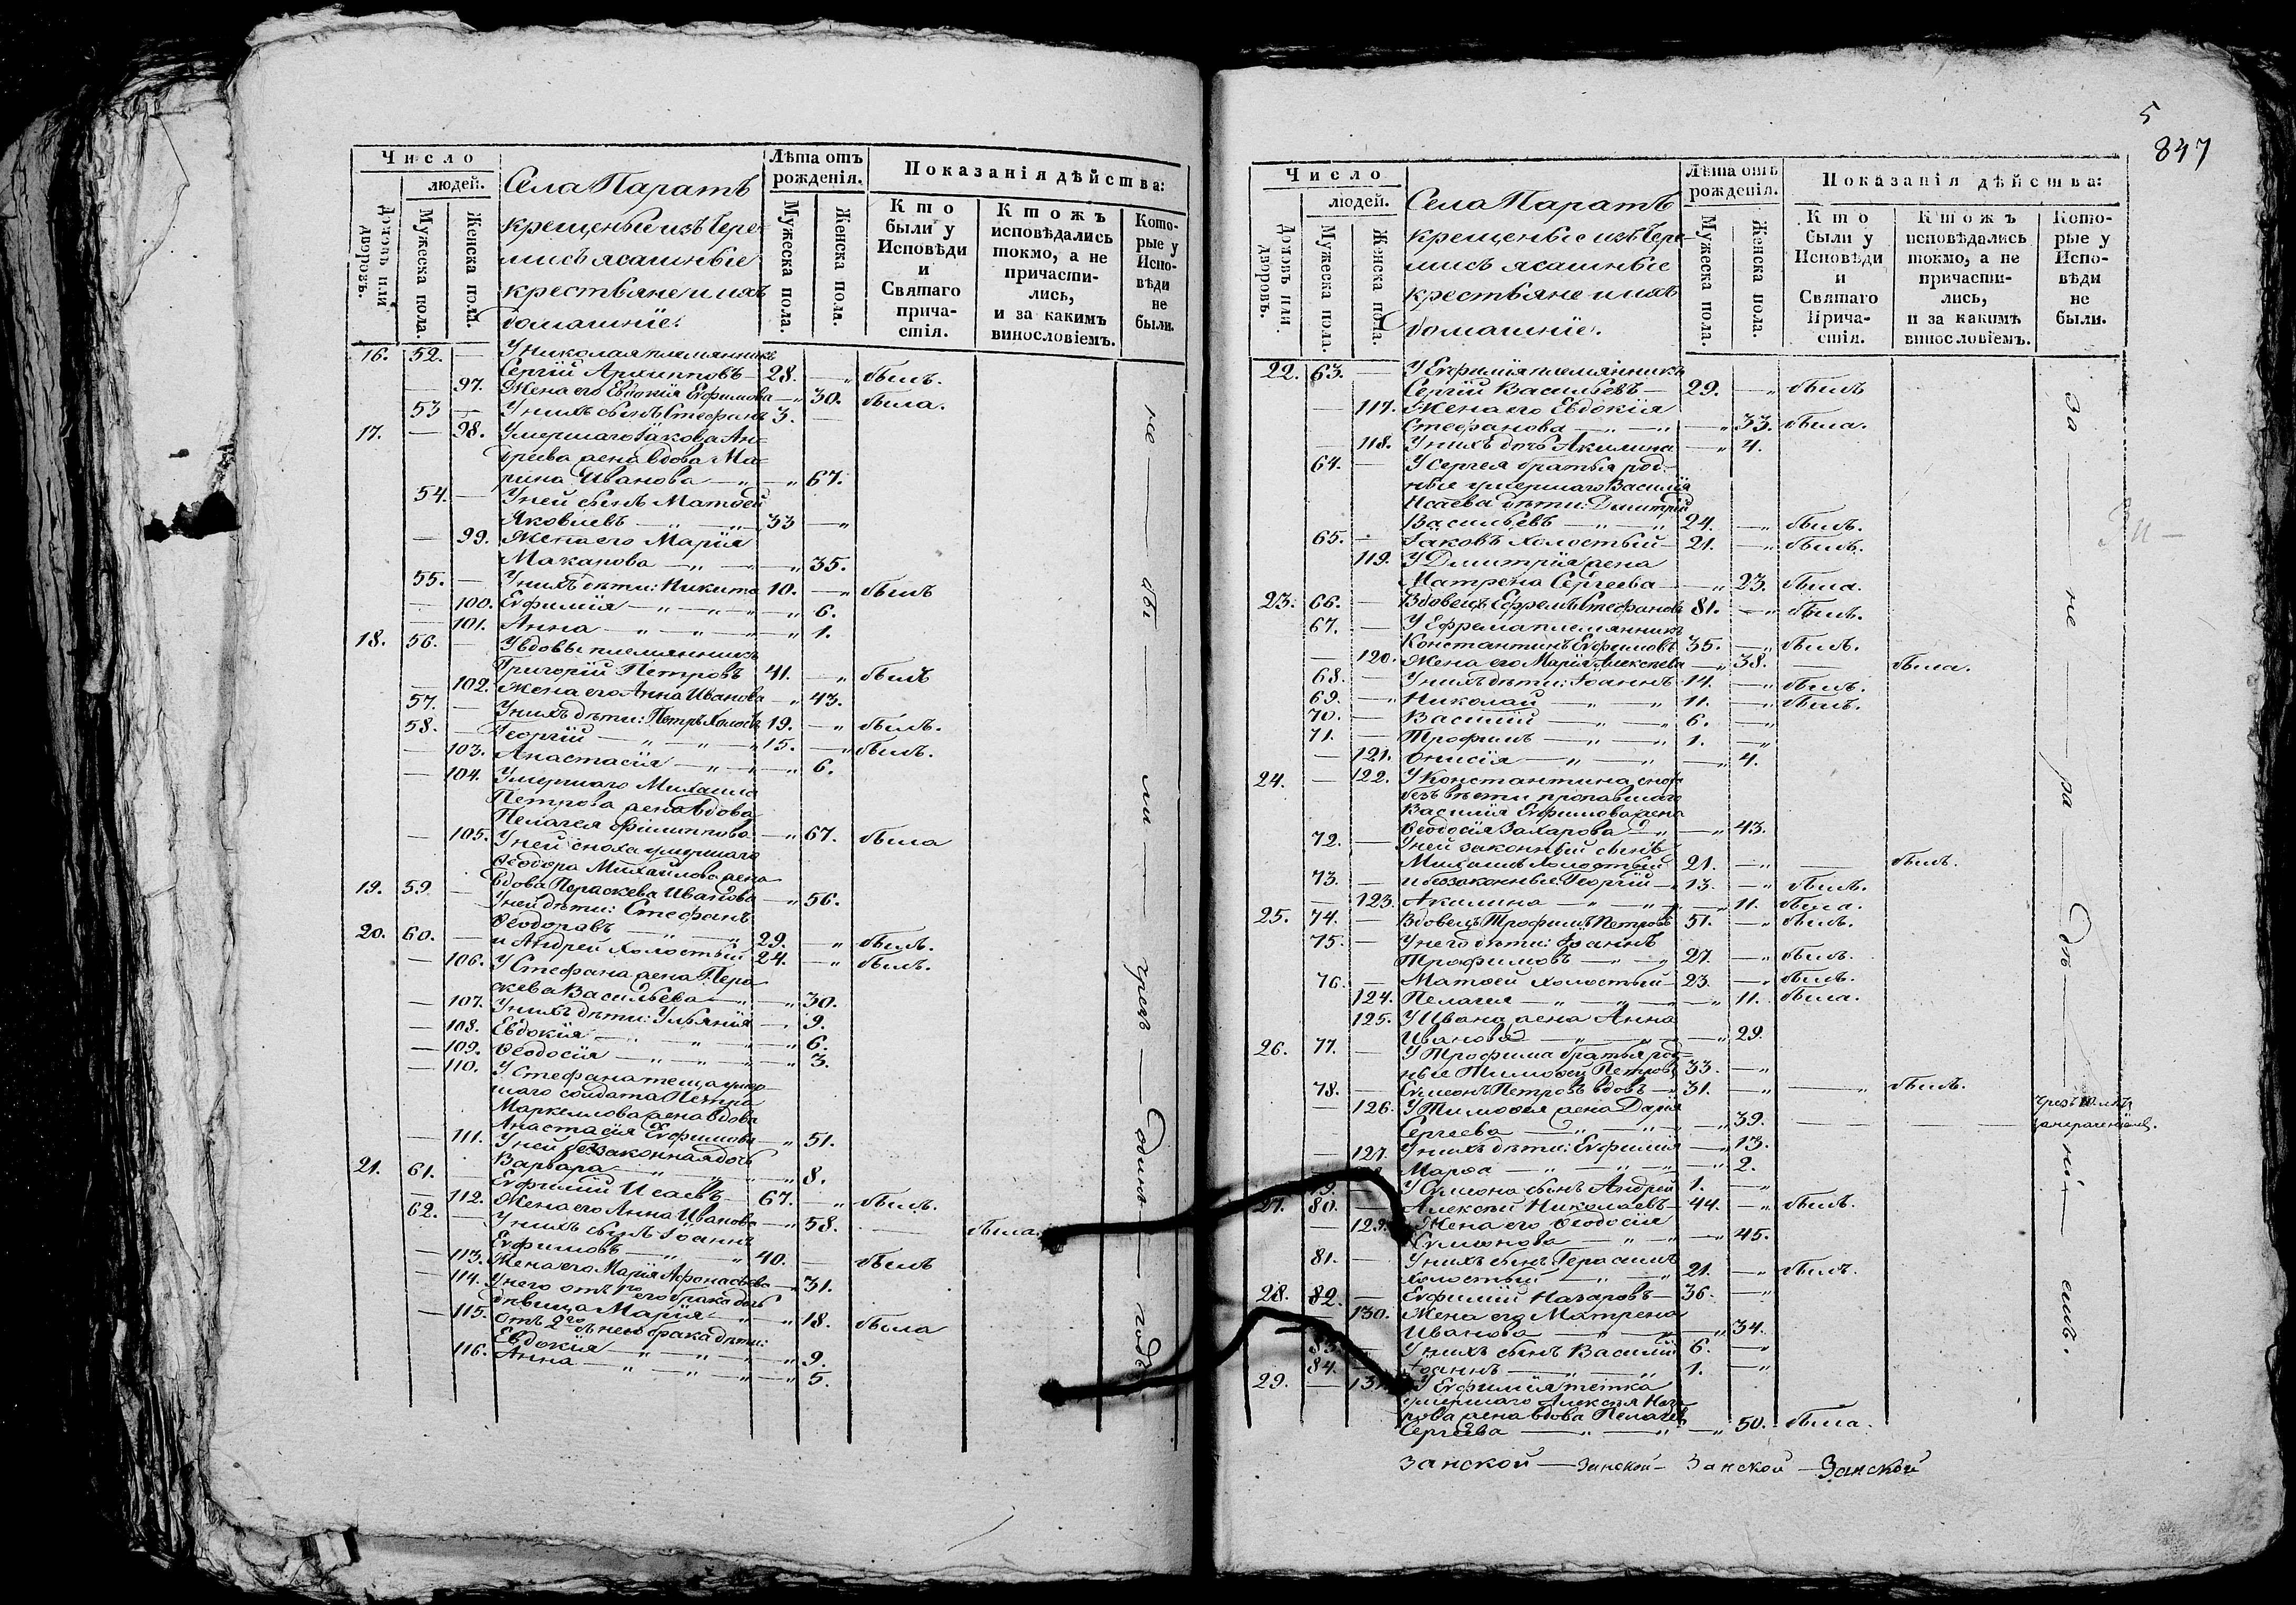 Число
людей.
Домовъ или дворовъ.
Мужеска пола.
Женска пола.
Села Паратъ
крещеные изъ Чере-
мисъ ясашные
крестьяне и ихъ
домашніе:
Лѣта отъ рожденія.
Мужеска пола.
Женска пола.
Показанія дѣйства:
Кто были у Исповѣди и Святаго причастія.
Ктожъ исповѣдались токмо, а не причастились, и за какимъ винословіемъ.
Которые у Исповѣди не были.
16. 52. — У Николая племянникъ
Сергій Архипповъ — 28. — былъ.
— 97. Жена его Евдокія Евфимова — 30. была.
53 — У нихъ сынъ Стефанъ 3. —
17. — 98. Умершаго Іакова Ан-
дреева жена вдова Ма-
рина Иванова — 67.
54. — У ней сынъ Матфей
Яковлевъ — 33 —
— 99. Жена его Марія
Макарова — 35.
55. — У нихъ дѣти: Никита 10. — былъ
— 100. Евфимія — 6.
— 101. Анна — 1.
18. 56. — У вдовы племянникъ
Григорій Петровъ 41. — былъ
— 102. Жена его Анна Иванова — 43.
57. — У нихъ дѣти: Петръ холостъ 19. — былъ.
58. — Георгій — 15. — былъ.
— 103. Анастасія — 6.
— 104. Умершаго Михаила
Петрова жена вдова
Пелагея Филиппова — 67. была
— 105. У ней сноха умершаго
Ѳеодора Михайлова жена
вдова Параскева Иванова — 56.
19. 59 — У ней дѣти: Стефанъ
Ѳеодоровъ — 29. — былъ.
20. 60. — и Андрей холостый 24. — былъ.
— 106. У Стефана жена Пара
скева Васильева — 30.
— 107. У нихъ дѣти: Ульянія — 9.
— 108. Евдокія — 6.
— 109. Ѳеодосія — 3.
— 110. У Стефана теща умер-
шаго солдата Петра
Маркеллова жена вдова
Анастасія Евфимова — 51.
— 111. У ней беззаконная дочь
Варвара — 8.
21. 61. — Евфимій Исаевъ — 67. — былъ.
— 112. Жена его Анна Иванова — 58. — была.
62. — У нихъ сынъ Іоаннъ
Евфимовъ — 40. — былъ
— 113. Жена его Марія Афонасьева — 31.
— 114. У него отъ 1го его брака дочь
дѣвица Марія — 18. была
— 115. Отъ 2го съ нею брака дѣти:
Евдокія — 9.
116. Анна — 5.
не — бы — ли — чрезъ — одинъ — годъ
5
847
Число
людей.
Домовъ или дворовъ.
Мужеска пола.
Женска пола.
Села Паратъ
крещеные изъ Чере-
мисъ ясашные
крестьяне и ихъ
домашніе.
Лѣта отъ рожденія.
Мужеска пола.
Женска пола.
Показанія дѣйства:
Кто были у Исповѣди и Святаго Причастія.
Ктожъ исповѣдались токмо, а не причастились, и за какимъ винословіемъ.
Которые у Исповѣди не были.
22. 63. — У Евфимія племянникъ
Сергій Васильевъ — 29. — былъ
— 117. Жена его Евдокія
Стефанова — 33. была.
— 118. У нихъ дочь Акилина — 4.
64. — У Сергея братья род-
ные умершаго Василія
Исаева дѣти: Димитрій
Васильевъ — 24. — былъ.
65. — Іаковъ холостый — 21. — былъ.
119. У Димитрія жена
Матрена Сергеева — 23. была.
23. 66. — Вдовецъ Ефремъ Стефановъ 81. — былъ.
67. — У Ефрема племянникъ
Константинъ Евфимовъ 35. — былъ.
— 120. Жена его Марія Алексеева — 38. — была.
68. — У нихъ дѣти: Іоаннъ 14. — былъ.
69. — Николай — 11. — былъ.
70. — Василій — 6. —
71. — Трофимъ — 1. —
— 121. Онисія — 4.
24. — 122. У Константина сноха
безъ вѣсти пропавшаго
Василія Евфимова жена
Ѳеодосія Захарова — 43.
72. — У ней законный сынъ
Михаилъ холостый 21. — былъ.
73. — и безаконные: Георгій — 13. — былъ.
— 123. Акилина — 11. была.
25. 74. — Вдовецъ Трофимъ Петровъ 51. — былъ.
75. — У него дѣти: Іоаннъ
Трофимовъ — 27. — былъ.
76. — Матфей холостый — 23. — былъ.
124. Пелагея — 11. была.
125. У Ивана жена Анна
Иванова — 29.
26. 77. — У Трофима братья род-
ные Тимофей Петровъ 33. —
78. — Симеонъ Петровъ вдовъ — 31. — былъ.
— 126. У Тимофея жена Дарія
Сергеева — 39. — чрезъ 10 лѣтъ
— 127. У нихъ дѣти: Евфимія — 13.
Марфа — 2.
79. — У Симеона сынъ Андрей 1. —
27. 80. — Алексѣй Николаевъ — 44. — былъ.
— 129. Жена его Ѳеодосія
Симеонова — 45.
81. — У нихъ сынъ Герасимъ
холостый — 21. — былъ.
28. 82. — Евфимій Назаровъ — 36. —
130. Жена его Матрена
Иванова — 34.
83. — У нихъ сынъ Василій 6. —
84. — Іоаннъ — 1. —
29. — 131. У Евфимія тетка
умершаго Алексѣя Наза-
рова жена вдова Пелагея
Сергеева — 50. была.
за — не — ра — дѣ — ні — емъ.
Занской — Занской — Занской — Занской